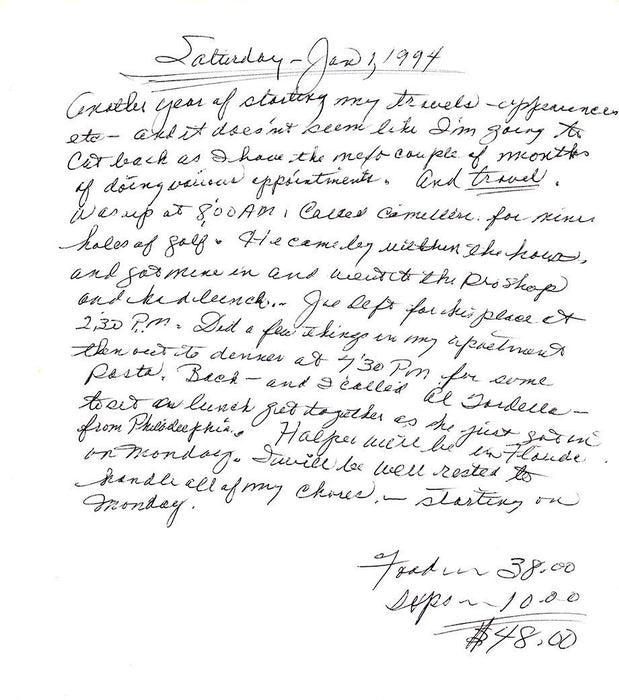 Saturday - Jan 1, 1994
Another year of starting my travels - appearences
etc - and it doesn't seem like I'm going to
Cut back as I have the next couple of months
of doing various appointments. And travel.
Was up at 8:00 AM. Called for nine
holes of golf. He came by within the hour,
and got nine in and went to the Pro Shop
and had lunch.. Joe left for his place at
2:30 P.M. Did a few things in my apartment
then out to dinner at 7:30 PM for some
Pasta. Back - and I called Al
to set a lunch get together as he just got in
from Philidelphia. will be in Floida
on Monday. I will be well rested to
handle all of my chores. - starting on
Monday.
Food 38.00
10.00
$48.00